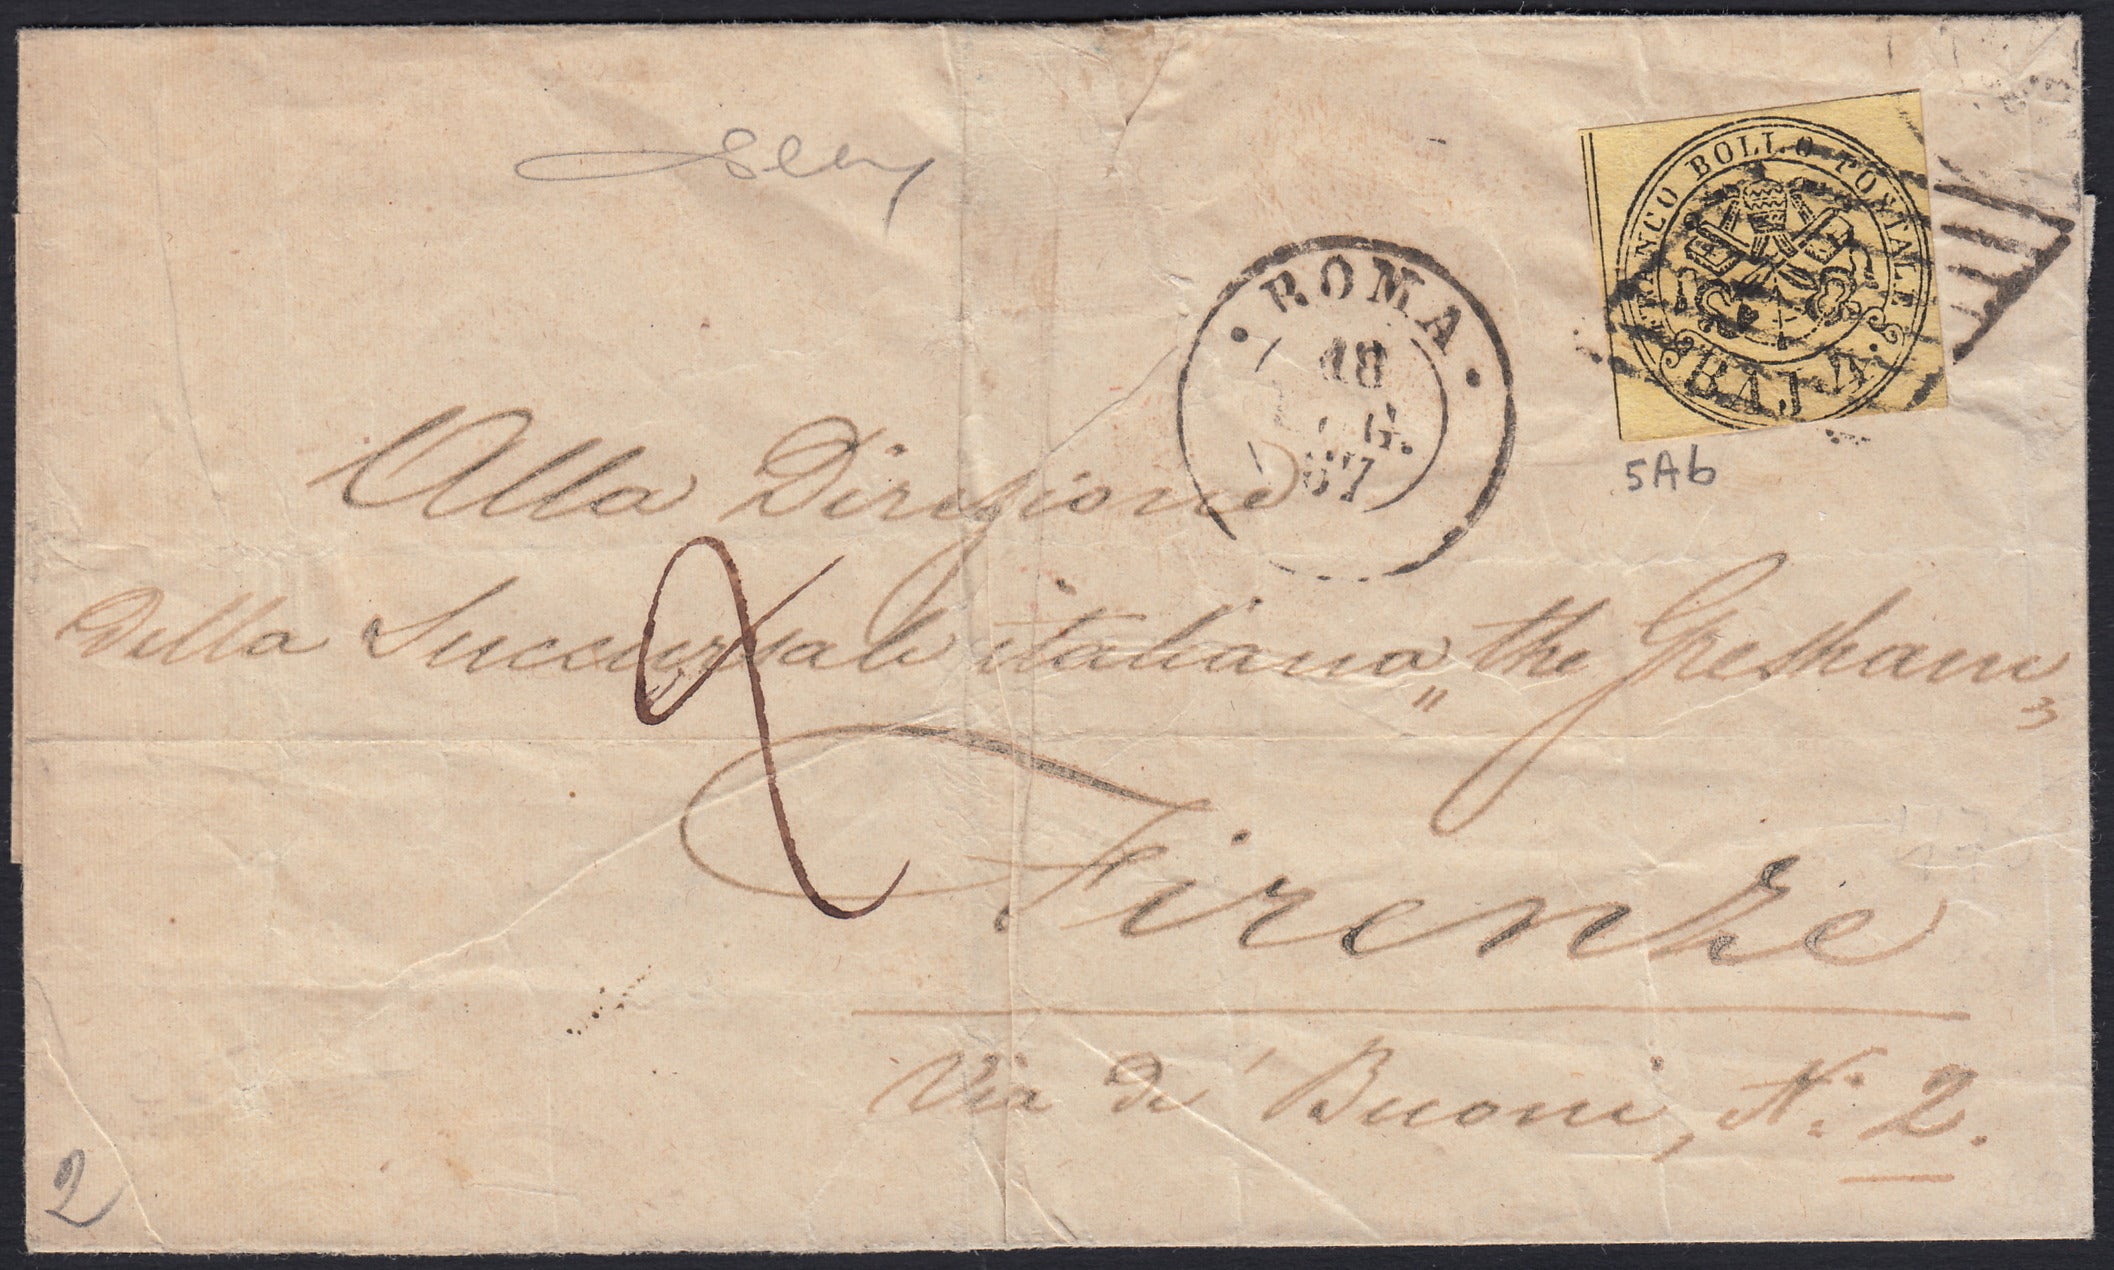 FRANCO BOLLO POSTALE
BAJ 4.
5Ab
ROMA
18
67
Alla Direzione
della Succursale italiana „the Gresham"
Firenze
Via de' Buoni, N: 2.
2
2